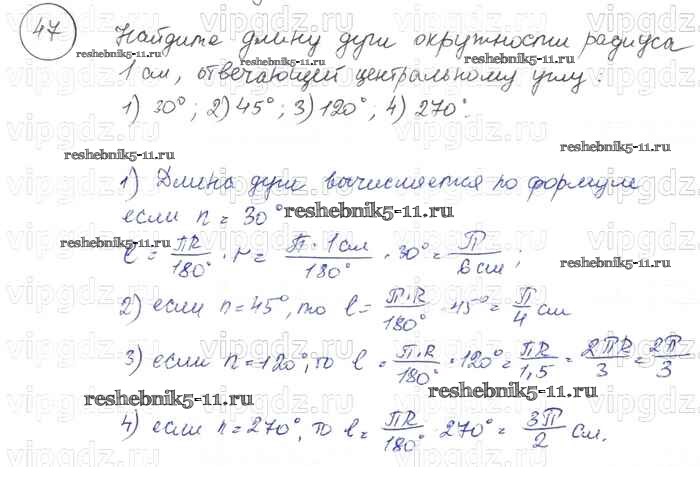 47 Найдите длину дуги окружности радиуса
1 см, отвечающей центральному углу:
1) 30°; 2) 45°; 3) 120°, 4) 270°.
1) Длина дуги вычисляется по формуле
если n = 30°
ℓ = ПR/180° · n = П · 1см/180° · 30° = П/6 см;
2) если n = 45°, то ℓ = П·R/180° · 45° = П/4 см
3) если n = 120°, то ℓ = П·R/180° · 120° = ПR/1,5 = 2ПR/3 = 2П/3
4) если n = 270°, то ℓ = ПR/180° 270° = 3П/2 см.
reshebnik5-11.ru
reshebnik5-11.ru
reshebnik5-11.ru
reshebnik5-11.ru
reshebnik5-11.ru
reshebnik5-11.ru
reshebnik5-11.ru
reshebnik5-11.ru
reshebnik5-11.ru
vipgdz.ru